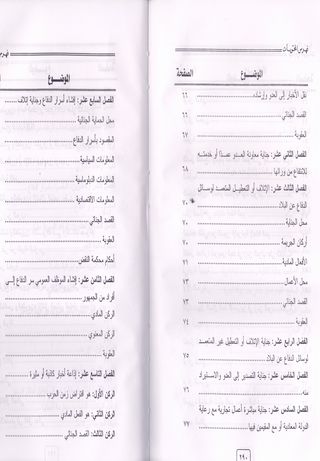 فهرس المحتويات
الموضــــوع الصفحة
نقل الأخبار إلى العدو وإرشاده ٦٦
القصد الجنائي ٦٦
العقوبة ٦٧
الفصل الثاني عشر: جناية معاونة العدو عمدًا أو خدمته
للانتفاع من ورائها ٦٨
الفصل الثالث عشر: الإتلاف أو التعطيل المتعمد لوسائل
الدفاع عن البلاد ٧٠
محل الجناية ٧٠
أركان الجريمة ٧٠
الأفعال المادية ٧١
محل الأعمال ٧٣
القصد الجنائي ٧٣
العقوبة ٧٤
الفصل الرابع عشر: جناية الإتلاف أو التعطيل غير المتعمد
لوسائل الدفاع عن البلاد ٧٥
الفصل الخامس عشر: جناية التصدير إلى العدو والاستيراد
منه ٧٦
الفصل السادس عشر: جناية مباشرة أعمال تجارية مع رعاية
الدولة المعادية أو مع المقيمين فيها ٧٧
٢٩٠
الموضــــوع
الفصل السابع عشر: إفشاء أسرار الدفاع وجناية إتلاف
محل الحماية الجنائية
المقصود بأسرار الدفاع
المعلومات السياسية
المعلومات الدبلوماسية
المعلومات الاقتصادية
القصد الجنائي
العقوبة
أحكام محكمة النقض
الفصل الثامن عشر: إفشاء الموظف العمومي سر الدفاع إلى
أفراد من الجمهور
الركن المادي
الركن المعنوي
العقوبة
الفصل التاسع عشر: إذاعة أخبار كاذبة أو مثيرة
الركن الأول: هو افتراض زمن الحرب
الركن الثاني: هو الفعل المادي
الركن الثالث: القصد الجنائي